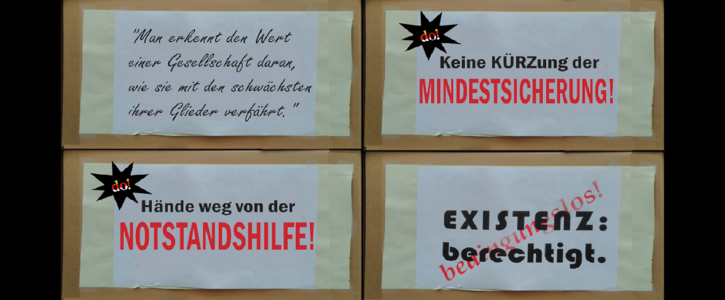 "Man erkennt den Wert
einer Gesellschaft daran,
wie sie mit den schwächsten
ihrer Glieder verfährt."
do!
Keine KÜRZung der
MINDESTSICHERUNG!
do!
Hände weg von der
NOTSTANDSHILFE!
EXISTENZ:
bedingungslos!
berechtigt.